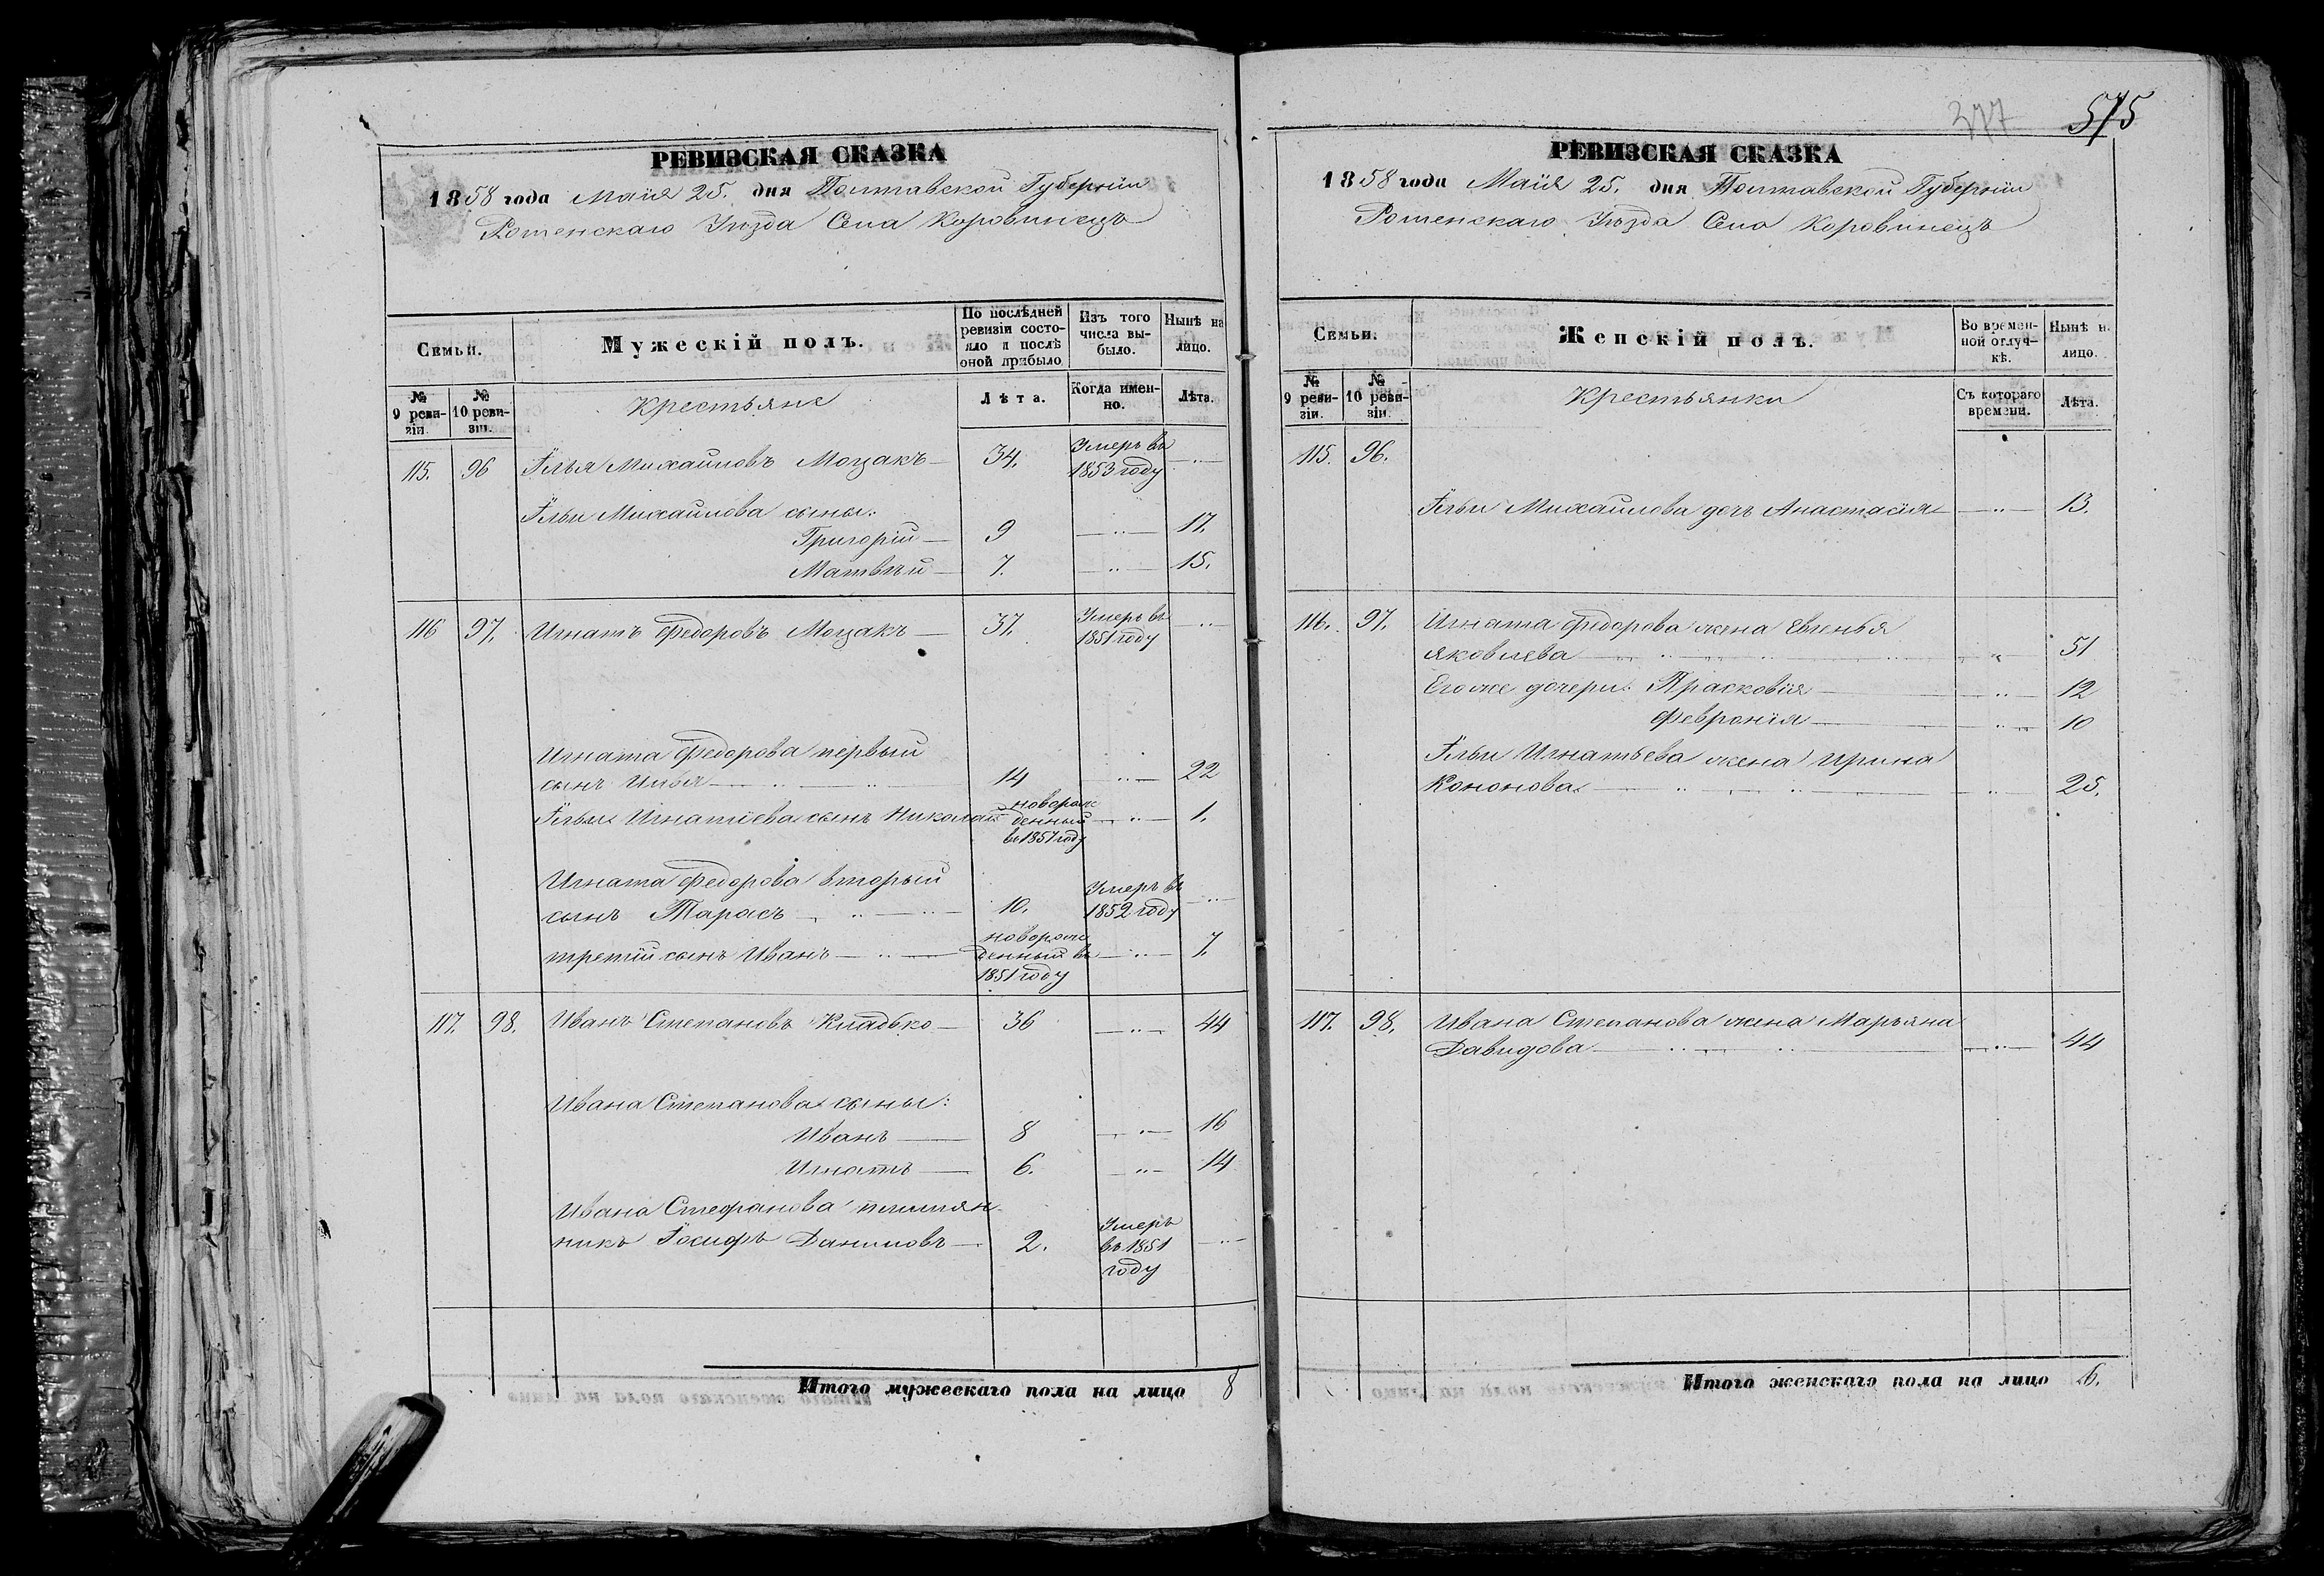 377 575
РЕВИЗСКАЯ СКАЗКА
1858 года Маія 25. дня Полтавской Губерніи
Роменскаго Уѣзда Села Коровинецъ
Семьи.
Мужескій полъ.
По послѣдней ревизіи состояло и послѣ оной прибыло
Изъ того числа выбыло.
Нынѣ на лицо.
№ 9 ревизіи.
№ 10 ревизіи.
Крестьяне
Лѣта.
Когда именно.
Лѣта.
115. 96 Илья Михайловъ Моцакъ — 34. Умеръ въ 1853 году — „ —
Ильи Михайлова сыны:
Григорій — 9 — „ — 17.
Матвѣй — 7. — „ — 15.
116 97. Игнатъ Федоровъ Моцакъ — 37. Умеръ въ 1851 году — „ —
Игната Федорова первый
сынъ Илья — „ — 14 — „ — 22
Ильи Игнатіева сынъ Николай новорожденный въ 1857 году — „ — 1.
Игната Федорова вторый
сынъ Тарасъ — „ — 10. Умеръ въ 1852 году — „ —
третій сынъ Иванъ — „ — новорожденный въ 1851 году — „ — 7.
117. 98. Иванъ Степановъ Кладько — 36 — „ — 44
Ивана Степанова сыны:
Иванъ — 8 — „ — 16
Игнатъ — 6. — „ — 14
Ивана Стефанова племян-
никъ Іосифъ Даниловъ — 2. Умеръ въ 1851 году — „ —
Итого мужескаго пола на лицо 8
РЕВИЗСКАЯ СКАЗКА
1858 года Маія 25. дня Полтавской Губерніи
Роменскаго Уѣзда Села Коровинецъ
Семьи.
Женскій полъ.
Во временной отлучкѣ.
Нынѣ н. лицо.
№ 9 ревизіи.
№ 10 ревизіи.
Крестьянки
Съ котораго времени.
Лѣта.
115. 96.
Ильи Михайлова дочь Анастасія — „ — 13.
116. 97. Игната Федорова жена Евгенья
Яковлева — „ — 51
Егоже дочери: Прасковія — „ — 12
Февронія — „ — 10
Ильи Игнатьева жена Ирина
Кононова — „ — 25.
117. 98. Ивана Степанова жена Марьяна
Давидова — „ — 44
Итого женскаго пола на лицо 6.